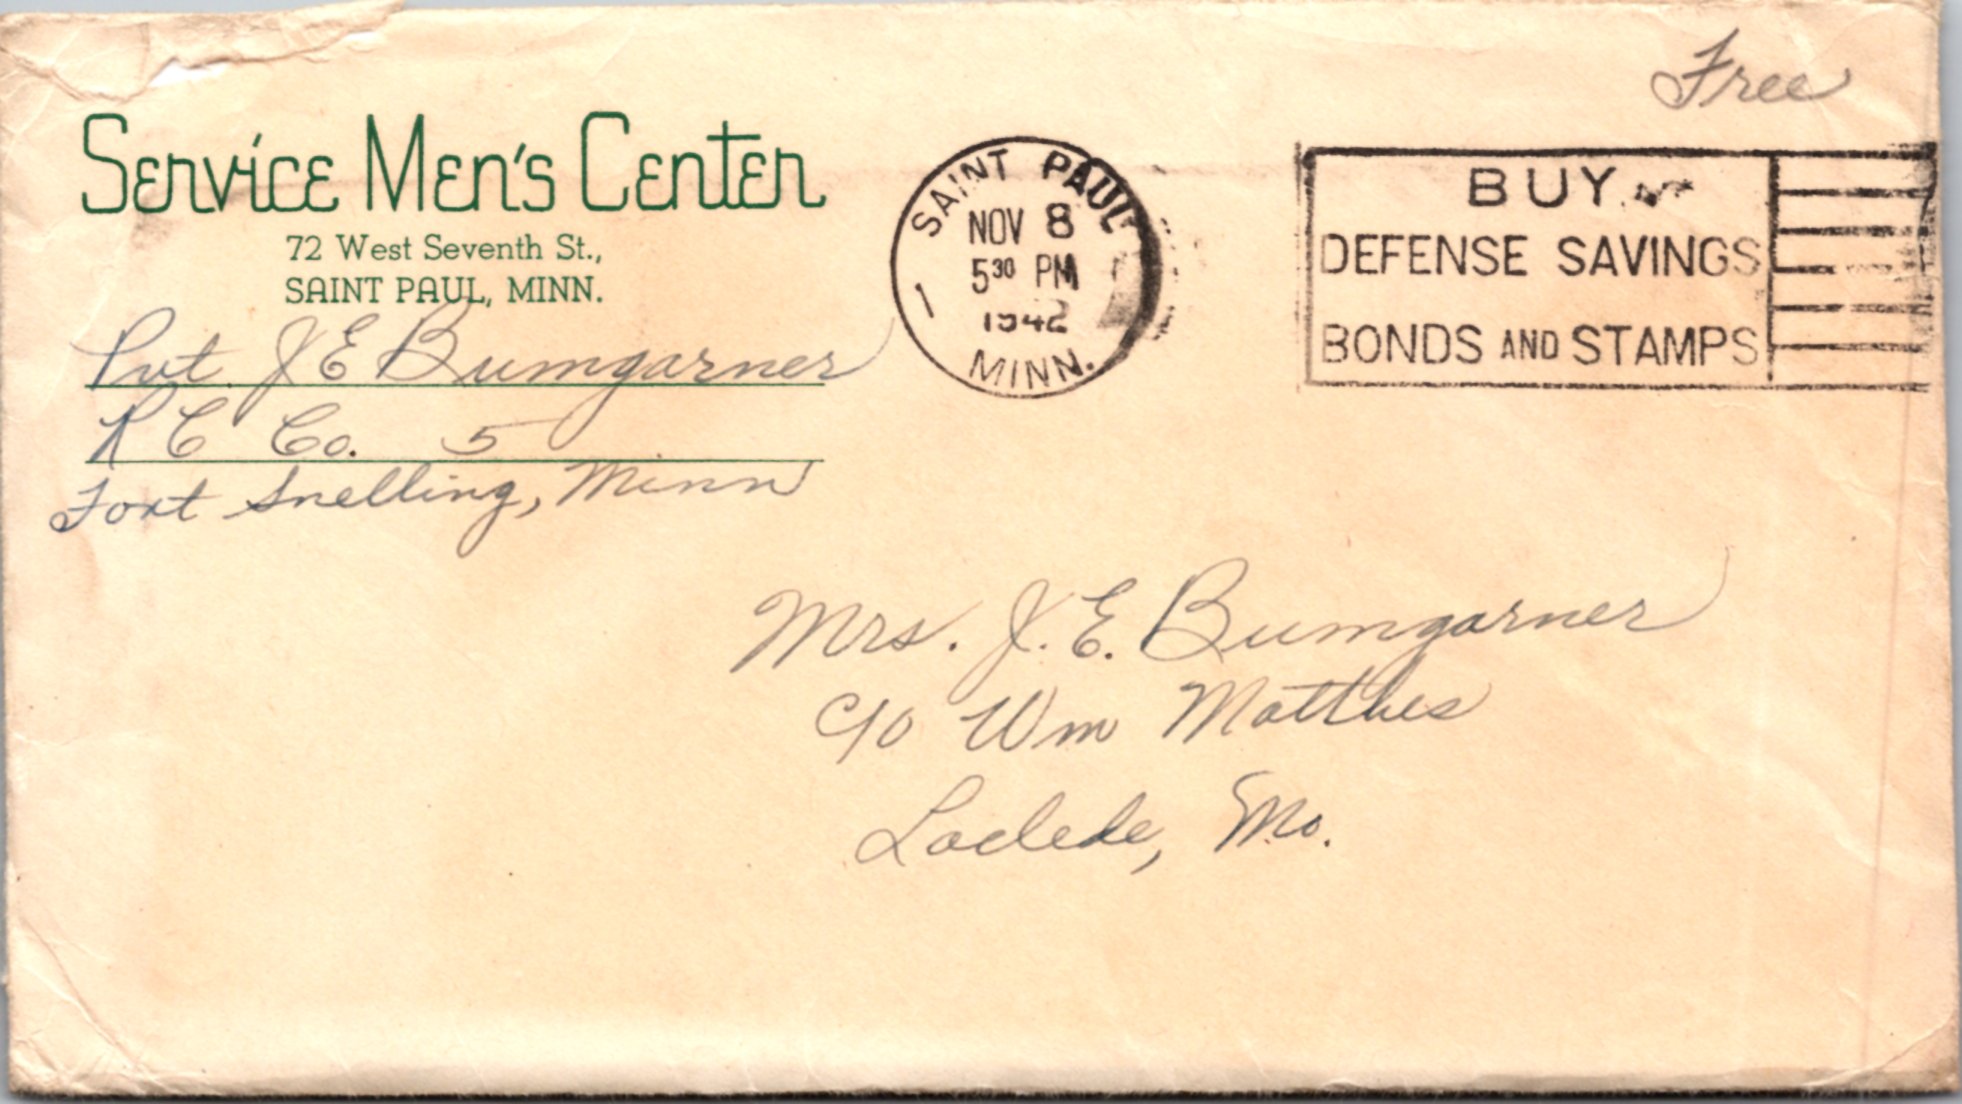 Free
Service Men's Center
72 West Seventh St.,
SAINT PAUL, MINN.
Pvt. J E Bumgarner
R C Co. 5
Fort Snelling, Minn
SAINT PAUL
NOV 8
5 30 PM
1942
1
MINN.
BUY
DEFENSE SAVINGS
BONDS AND STAMPS
Mrs. J. E. Bumgarner
c/o Wm Matthes
Laclede, Mo.